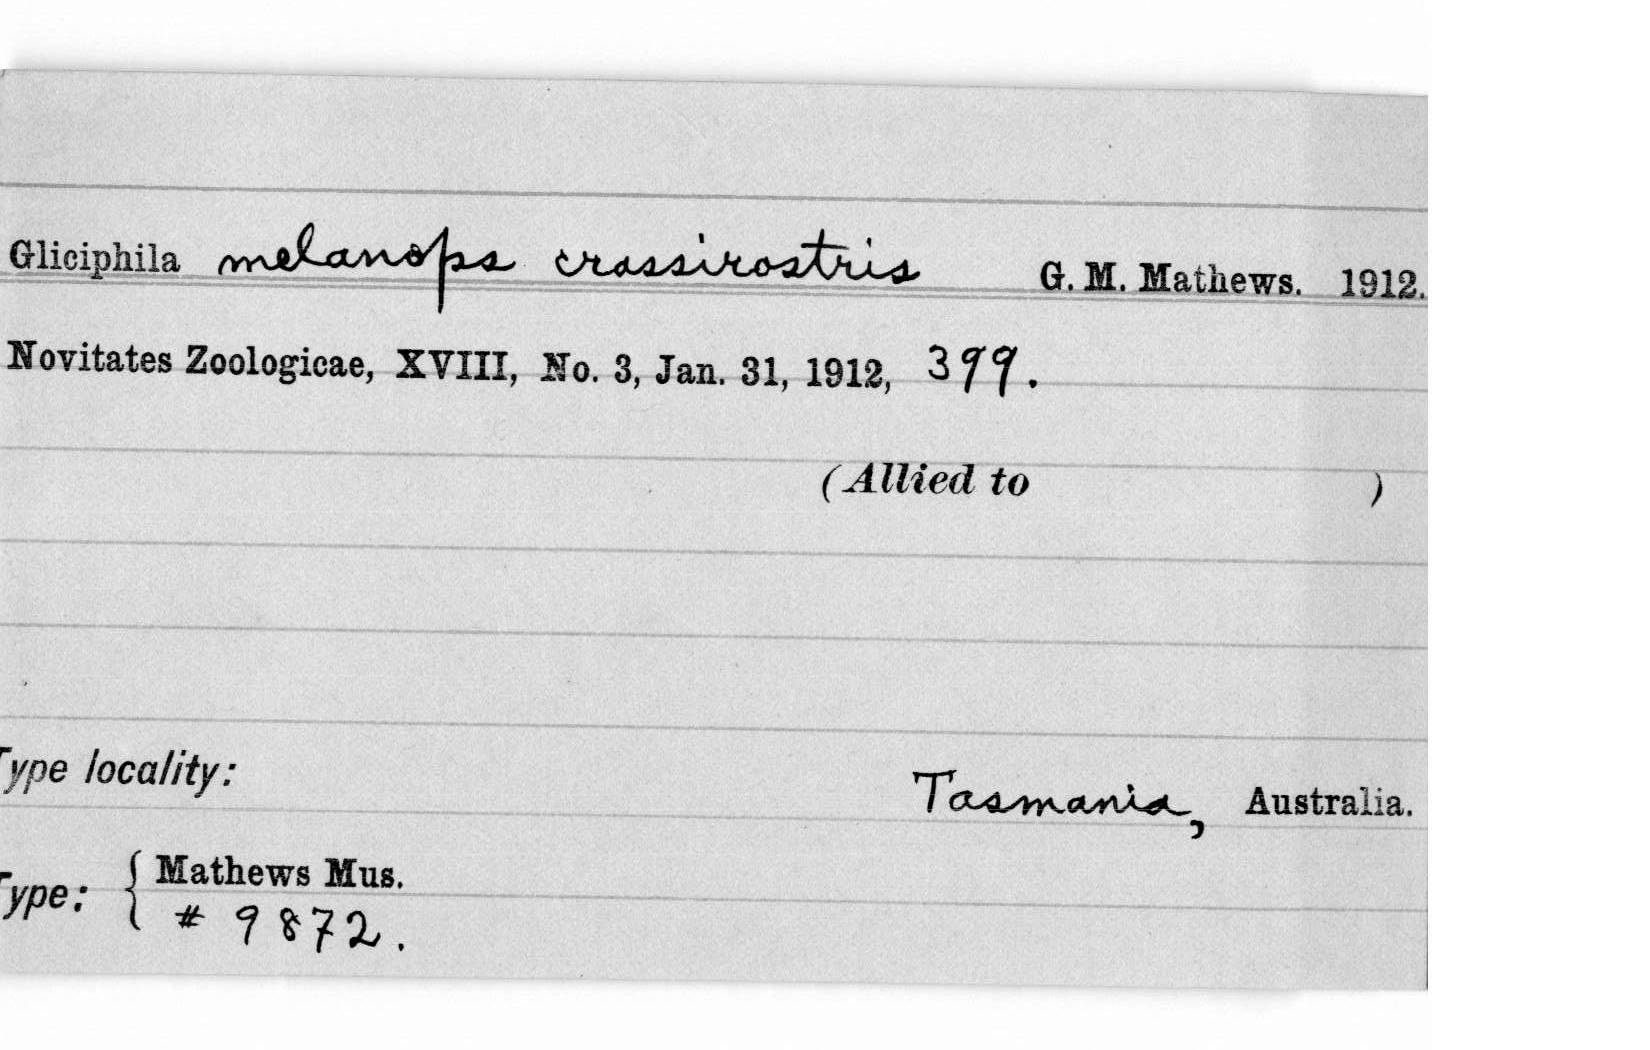 Gliciphila melanops crassirostris G. M. Mathews. 1912.
Novitates Zoologicae, XVIII, No. 3, Jan. 31, 1912, 399.
(Allied to )
Type locality: Tasmania, Australia.
Type: { Mathews Mus.
# 9872.